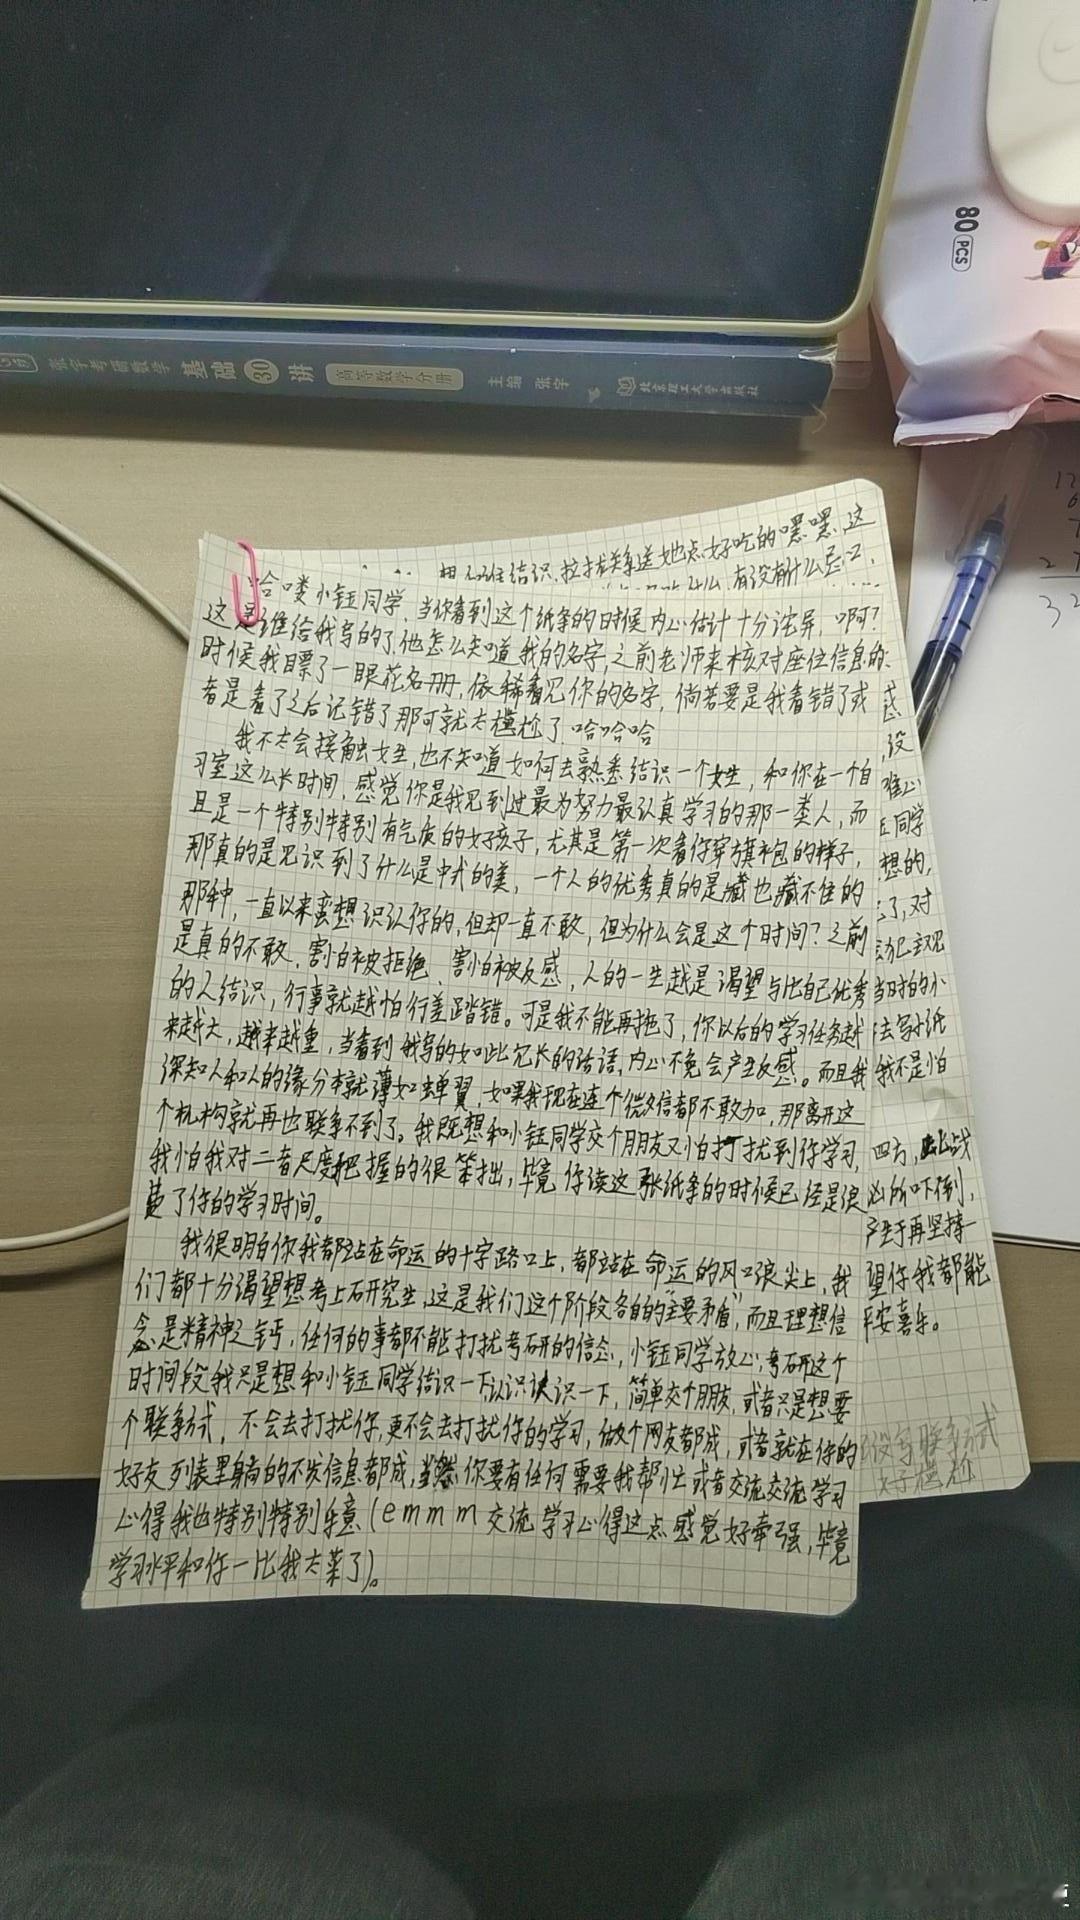 80
PCS
张宇考研数学 基础 30 讲 高等数学分册 主编 张宇 北京理工大学出版社
结识,拉扯关系送她点好吃的嘿嘿,这
有没有什么忌口,
哈喽小钰同学,当你看到这个纸条的时候内心估计十分诧异,啊?
这是谁给我写的了,他怎么知道我的名字,之前老师来核对座位信息的
时候我瞟了一眼花名册,依稀看见你的名字,倘若要是我看错了或
者是看了之后记错了那可就太尴尬了,哈哈哈
我不太会接触女生,也不知道如何去熟悉结识一个女生,和你在一个自
习室这么长时间,感觉你是我见到过最为努力最认真学习的那一类人,而
且是一个特别特别有气质的女孩子,尤其是第一次看你穿旗袍的样子,
那真的是见识到了什么是中式的美,一个人的优秀真的是藏也藏不住的
那种,一直以来蛮想认识你的,但却一直不敢,但为什么会是这个时间?之前
是真的不敢,害怕被拒绝、害怕被反感,人的一生越是渴望与比自己优秀
的人结识,行事就越怕行差踏错。可是我不能再拖了,你以后的学习任务越
来越大,越来越重,当看到我写的如此冗长的话语,内心不免会产生反感。而且我
深知人和人的缘分本就薄如蝉翼,如果我现在连个微信都不敢加,那离开这
个机构就再也联系不到了。我既想和小钰同学交个朋友又怕打扰到你学习,
我怕我对二者尺度把握的很笨拙,毕竟你读这张纸条的时候已经是浪
费了你的学习时间。
我很明白你我都站在命运的十字路口上,都站在命运的风口浪尖上,我
们都十分渴望想考上研究生,这是我们这个阶段各自的"主要矛盾",而且理想信
念是精神之钙,任何的事都不能打扰考研的信念,小钰同学放心,考研这个
时间段我只是想和小钰同学结识一下认识认识一下,简单交个朋友,或者只是想要
个联系式,不会去打扰你,更不会去打扰你的学习,做个网友都成,或者就在你的
好友列表里躺的不发信息都成,当然你要有任何需要我帮忙或者交流交流学习
心得我也特别特别乐意(emmm交流学习心得这点感觉好牵强,毕竟
学习水平和你一比我太菜了)。
感
,没
同学
想的,
了,对
当时的小
法写小纸
我不是怕
四方,
所吓倒,
产生于再坚持一
望你我都能
平安喜乐。
没写联系方式
好尴尬